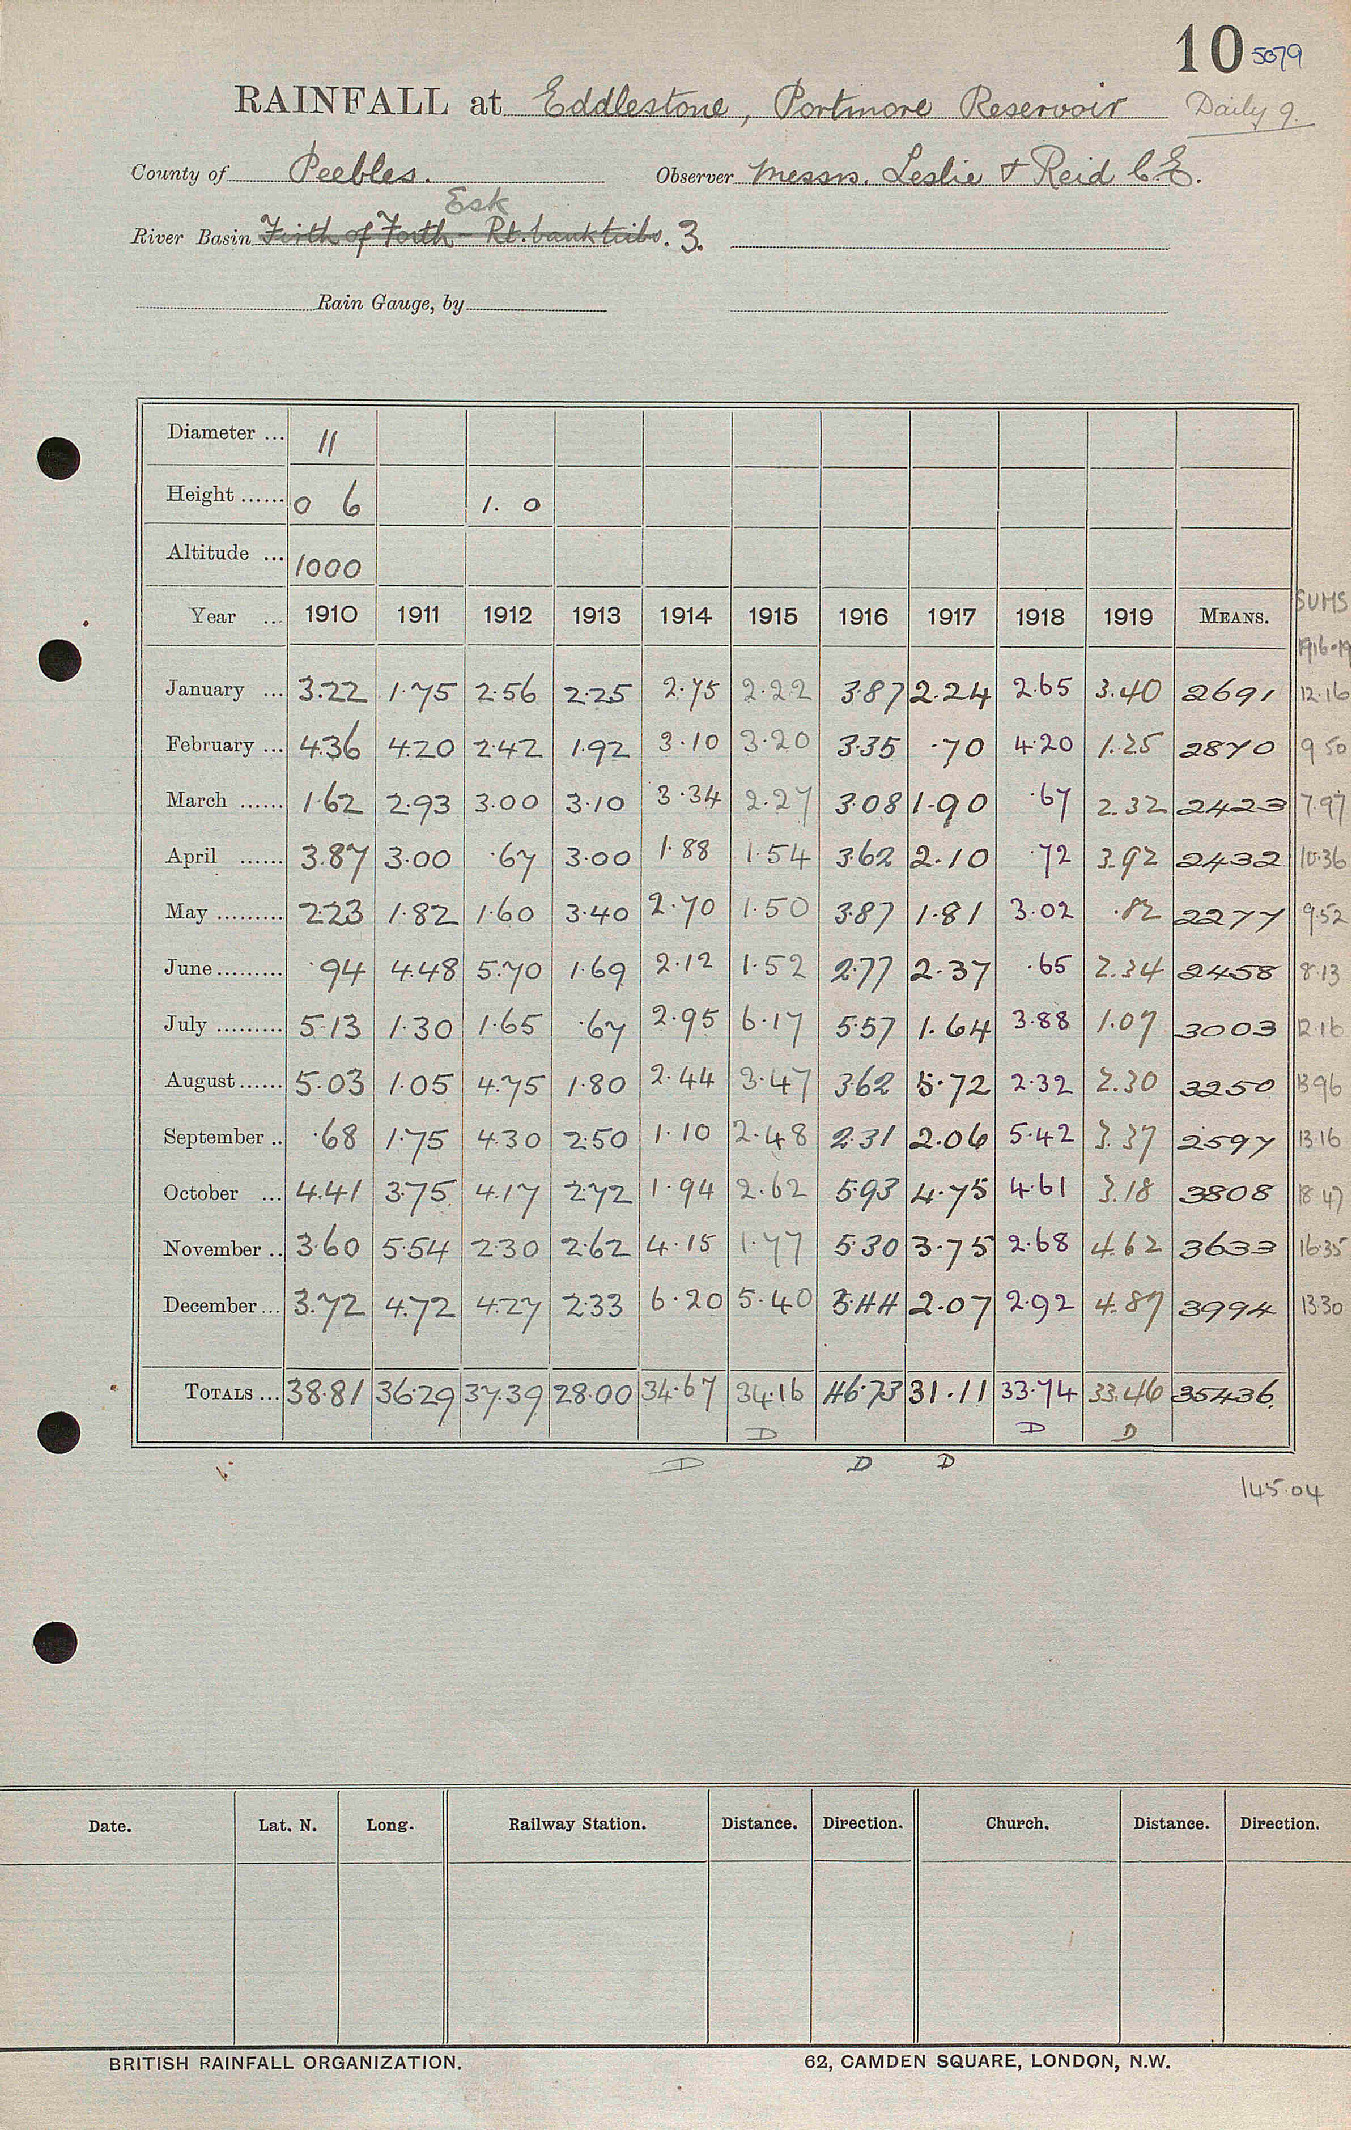 10 5079
RAINFALL at Eddlestone, Portmore Reservoir Daily 9.
County of Peebles. Observer Messrs. Leslie & Reid C.E.
Esk
River Basin Firth of Forth - Rt. bank tribs. 3.
Rain Gauge, by
Diameter ... 11
Height ...... 0 6 1. 0
Altitude ... 1000
Year ... 1910 1911 1912 1913 1914 1915 1916 1917 1918 1919 MEANS. SUMS
1916-19
January ... 3.22 1.75 2.56 2.25 2.75 2.22 3.87 2.24 2.65 3.40 2691 12.16
February ... 4.36 4.20 2.42 1.92 3.10 3.20 3.35 .70 4.20 1.25 2870 9 50
March ...... 1.62 2.93 3.00 3.10 3.34 2.27 3.08 1.90 .67 2.32 2423 7.97
April ...... 3.87 3.00 .67 3.00 1.88 1.54 3.62 2.10 .72 3.92 2432 10.36
May ......... 2.23 1.82 1.60 3.40 2.70 1.50 3.87 1.81 3.02 .82 2277 9.52
June ......... .94 4.48 5.70 1.69 2.12 1.52 2.77 2.37 .65 2.34 2458 8.13
July ......... 5.13 1.30 1.65 .67 2.95 6.17 5.57 1.64 3.88 1.07 3003 12.16
August ...... 5.03 1.05 4.75 1.80 2.44 3.47 3.62 5.72 2.32 2.30 3250 13 96
September .. .68 1.75 4.30 2.50 1.10 2.48 2.31 2.06 5.42 3.37 2597 13.16
October ... 4.41 3.75 4.17 2.72 1.94 2.62 5.93 4.75 4.61 3.18 3808 18 47
November .. 3.60 5.54 2.30 2.62 4.15 1.77 5.30 3.75 2.68 4.62 3633 16.35
December ... 3.72 4.72 4.27 2.33 6.20 5.40 3.44 2.07 2.92 4.87 3994 13.30
TOTALS ... 38.81 36.29 37.39 28.00 34.67 34.16 46.73 31.11 33.74 33.46 35436.
D D D
D D D
145.04
Date. Lat. N. Long. Railway Station. Distance. Direction. Church. Distance. Direction.
BRITISH RAINFALL ORGANIZATION. 62, CAMDEN SQUARE, LONDON, N.W.